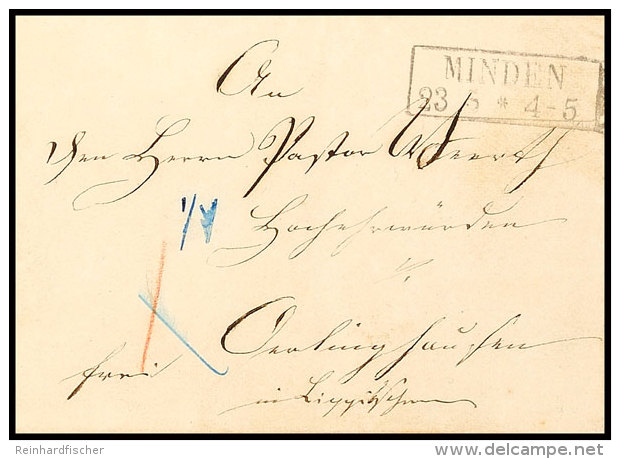 MINDEN
23 5 * 4-5
An
den Herrn Pastor Weerth
Hochehrwürden
1/4
Oerlinghausen
frei
in Lippischen
Reinhardfischer
delcampe.net